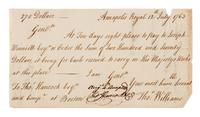 270 Dollars — Annapolis Royal 12th July 1763
Gentn
At Ten days sight please to pay to Joseph
Winniett Esqr or Order the Sum of Two Hundred and Seventy
Dollars it being for Cash received to carry on His Majestys Works
at this place I am Gentn
To Thos Hancock Esqr your most hum Servt
and Compy at Boston Tho Williams